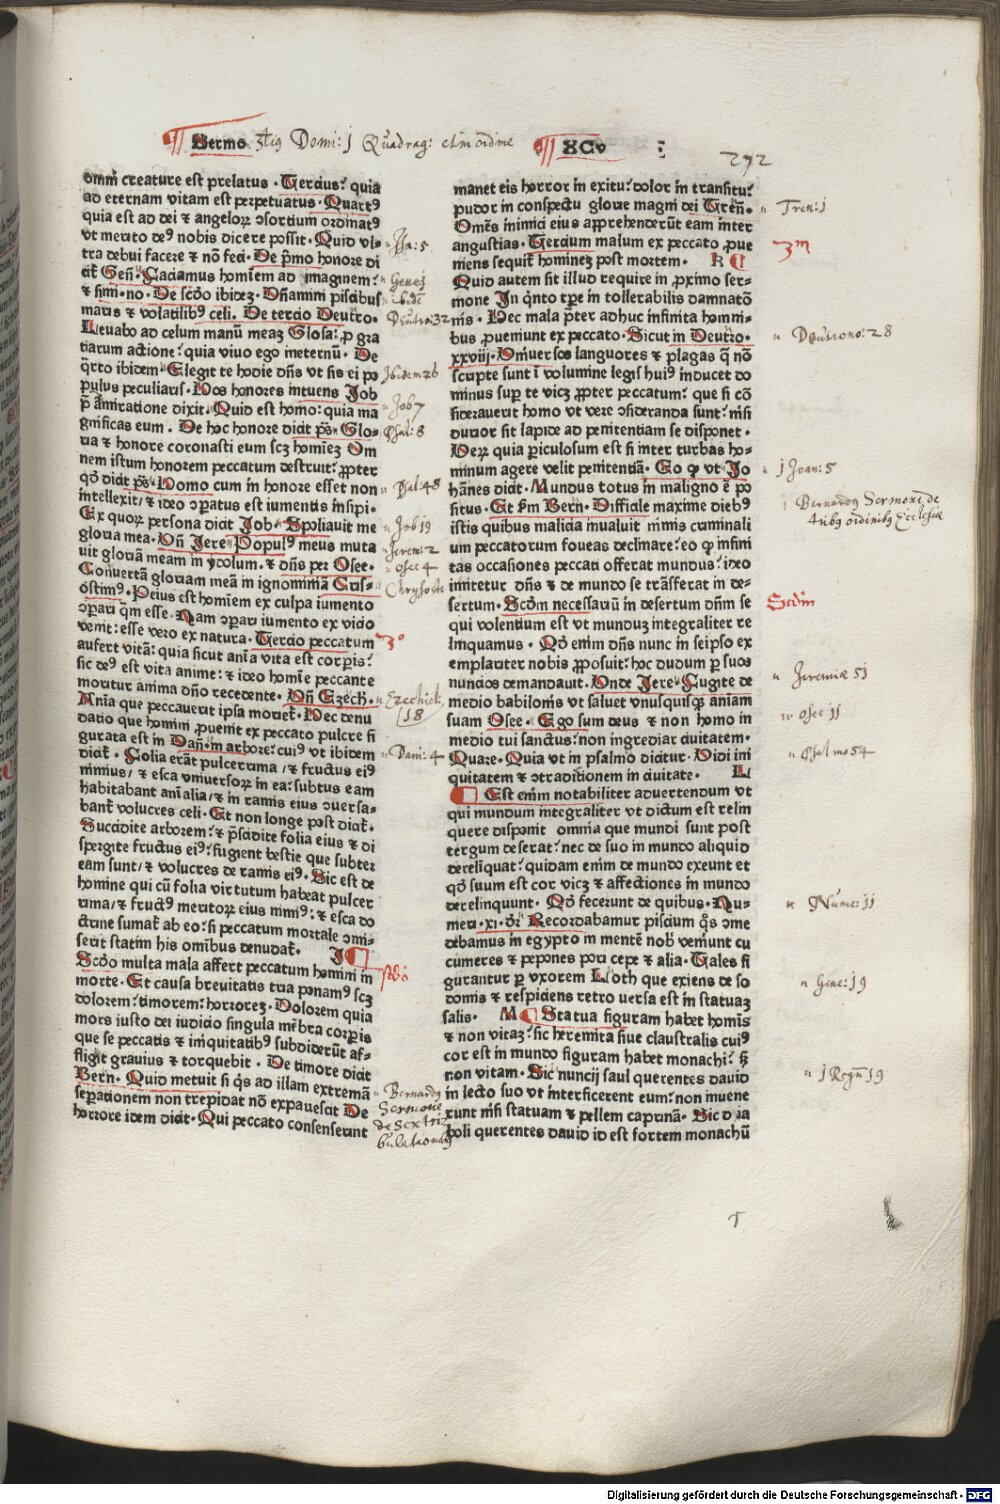 Sermo 3tius Domi: j Quadrag: etm ordine
XCv
292
omni creature est prelatus. Tercius? quia
ad eternam vitam est perpetuatus. Quart9
quia est ad dei & angeloꝝ ↄsortium ordinat9
vt merito de9 nobis dicere possit. Quid vl-
tra debui facere & nō feci. De pͥmo honore di
cit̉ Geñ. Faciamus homīem ad imaginem?
& simi.no. De scd̉o ibidez. Dn̄amini piscibus
maris & volatilib9 celi. De tercio Deutro.
Leuabo ad celum manū meaȝ Glosa? p̱ gra
tiarum actione? quia viuo ego ineternū. De
q̄rto ibidem Elegit te hodie dn̄s vt sis ei po
pulus peculiaris. Hos honores intuens Job
p̄ amiratione dixit. Quid est homo? quia ma
gnificas eum. De hoc honore dicit pš. Glo-
ria & honore coronasti eum scȝ homīeȝ Om
nem istum honorem peccatum destruit? ꝓpter
qd̉o dicit pš. Homo cum in honore esset non
intellexit? & ideo ↄparatus est iumentis insipi.
Ex quoꝝ persona dicit Job. Spoliauit me
gloria mea. Vn̄ Jere. Popul9 meus muta
uit gloriā meam in ydolum. & dn̄s per Osee.
Conuertā gloriam meā in ignominiā Cris-
ostim9. Peius est homīem ex culpa iumento
ↄpari q̄m esse. Nam ↄpari iumento ex vicio
venit? esse vero ex natura. Tercio peccatum
aufert vitā? quia sicut aīa vita est corpis?
sic de9 est vita anime? & ideo homīe peccante
moritur anima dn̄o recedente. Vn̄ Ezech.
Anīa que peccauerit ipsa moriet̉. Hec denu
datio que homini ꝓuenit ex peccato pulcre fi
gurata est in Dañ. in arbore? cui9 vt ibidem
dicit̉. Folia erāt pulcerrima / & fructus ei9
nimius / & esca vniuersoꝝ in ea? subtus eam
habitabant anīalia / & in ramis eius ↄuersa-
bant̉ volucres celi. Et non longe post dicit̉.
Succidite arborem? & p̄scidite folia eius & di
spergite fructus ei9? fugient bestie que subter
eam sunt / & volucres de ramis ei9. Sic est de
homine qui cū folia virtutum habeat pulcer
rima / & fruct9 meritoꝝ eius nimi9? & esca do
ctrine sumat̉ ab eo? si peccatum mortale ↄmi-
serit statim his omībus denudat̉. J
Scd̉o multa mala affert peccatum homini in
morte. Et causa breuitatis tria ponam9 scȝ
dolorem? timorem? horroreȝ. Dolorem quia
mors iusto dei iudicio singula mēbra corpis
que se peccatis & iniquitatib9 subdiderūt af-
fligit grauius & torquebit. De timore dicit
Bern. Quid metuit si q̄s ad illam extremā
sepationem non trepidat nō expauescit De
horrore idem dicit. Qui peccato consenserunt
Isa: 5
Genes j
ibidē
Deutro: 32
Ibidem 26
Job 7
Psal: 8
Psal: 48
Job 19
Jerem: 2
Osee 4
Chrysosto
3o
Ezechiel
18
Dani: 4
Scd̉o
Bernardg
Sermone
de sex tri
bulationibg
manet eis horror in exitu? dolor in transitu?
pudor in conspectu glorie magni dei Treñ.
Omēs inimici eius apprehenderūt eam inter
angustias. Tercium malum ex peccato ꝓue
niens sequit̉ hominez post mortem. K
Quid autem sit illud require in ꝓximo ser-
mone In q̄nto tp̄e in tollerabilis damnatō
nis. Hec mala p̄ter adhuc infinita homi-
bus ꝓueniunt ex peccato. Sicut in Deutro.
xxviij. Vniuersos languores & plagas q̄ nō
scripte sunt ī volumine legis hui9 inducet do
minus sup te vicȝ ꝓpter peccatum? que si cō
siderauerit homo vt vere ↄsideranda sunt? nisi
durior sit lapide ad penitentiam se disponet.
Veꝝ quia periculosum est fi inter turbas ho-
minum agere velit penitentiā. Eo ꝙ vt Jo
hānes dicit. Mundus totus in maligno ē po
situs. Et fm Bern. Difficile maxime dieb9
istis quibus malicia inualuit nimis criminali
um peccatorum foueas declinare? eo ꝙ infini
tas occasiones peccati offerat mundus? ideo
innitetur dn̄s & de mundo se trāsferat in de-
sertum. Scd̉m necessariū in desertum dn̄m se
qui volentium est vt munduȝ integraliter re
linquamus. Qd̉ enim dn̄s nunc in seipso ex
emplariter nobis ꝓposuit? hoc dudum p suos
nuncios demandauit. Vnde Jere. Fugite de
medio babilonis vt saluet vnusquisq̨ aniam
suam Osee. Ego sum deus & non homo in
medio tui sanctus? non ingrediar ciuitatem.
Quare. Quia vt in psalmo dicitur. Vidi ini
quitatem & ↄtradictionem in ciuitate. L
Est enim notabiliter aduertendum vt
qui mundum integraliter vt dictum est relin
quere disponit omnia que mundi sunt post
tergum deserat? nec de suo in mundo aliquid
derelīquat? quidam enim de mundo exeunt et
qd̉ suum est cor vicȝ & affectiones in mundo
derelinquunt. Qd̉ fecerunt de quibus. Nu-
meri.xi.dr̄ Recordabamur piscium q̄s ↄme
debamus in egypto in mentē nob̉ veniunt cu
cumeres & pepones pori cepe & alia. Tales fi
gurantur p vxorem Loth que exiens de so
domis & respiciens retro uersa est in statuaȝ
salis. M Statua figuram habet homīs
& non vitaȝ? sic heremita siue claustralis cui9
cor est in mundo figuram habet monachi? sȝ
non vitam. Sic nuncij saul querentes dauid
in lecto suo vt interficerent eum? non inuene
runt nisi statuam & pellem caprinā. Sic dia
boli querentes dauid id est fortem monachū
Tren: j
3m
Deutrono: 28
j Joan: 5
Bernardg Sermone de
4ribg ordinibg Ecclesia
Scd̉m
Jeremiæ 5j
Osee jj
Psalmo 54
Nume: jj
Gene: j9
j Regū 19
Digitalisierung gefördert durch die Deutsche Forschungsgemeinschaft - DFG